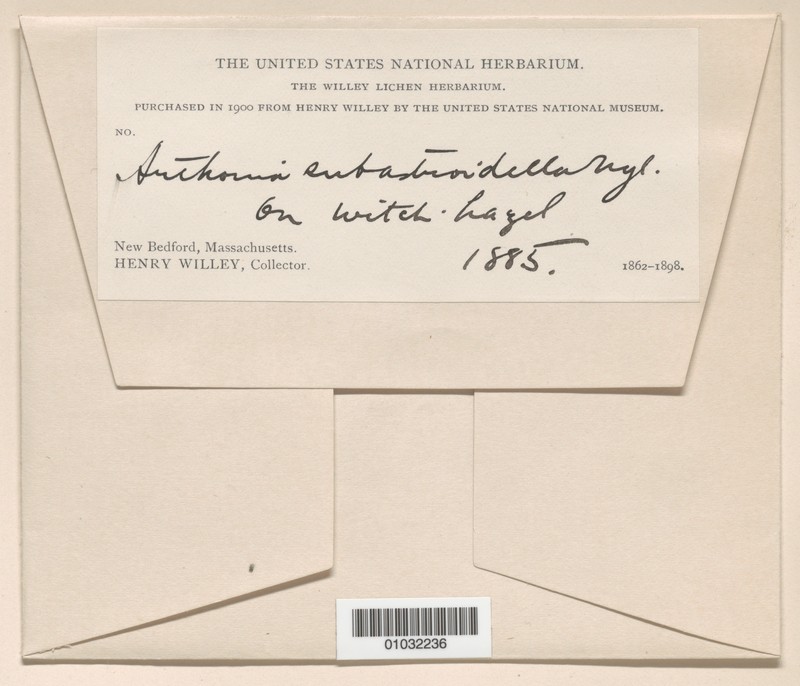 THE UNITED STATES NATIONAL HERBARIUM.
THE WILLEY LICHEN HERBARIUM.
PURCHASED IN 1900 FROM HENRY WILLEY BY THE UNITED STATES NATIONAL MUSEUM.
NO.
Arthonia subastroidella Nyl.
On witch-hazel
1885.
New Bedford, Massachusetts.
HENRY WILLEY, Collector.
1862–1898.
01032236